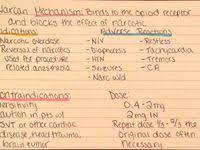 Narcan Mechanism: Binds to the opioid receptor
and blocks the effect of narcotic
ndications: Adverse Reactions
Narcotic overdose - N/V - Restless
Reversal of narcotics - Diaphoresis - Tachycardia
used for procedure - HTN - Tremors
related anesthesia - Seizures - CA
- Narc w/d
ontraindications: Dose:
ensitivity 0.4-2mg
aution in pts w/ 2mg IN
SVT or other cardiac Repeat dose 1/3 -
disease, head trauma, Original dose often
brain tumor necessary